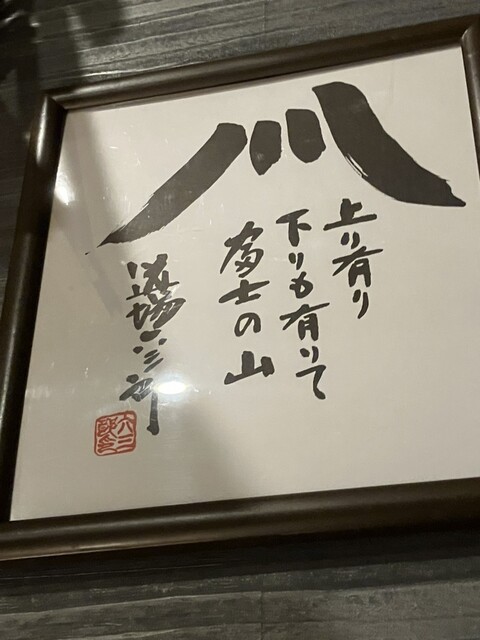 上り有り
下りも有りて
富士の山
道場六三郎
六三郎